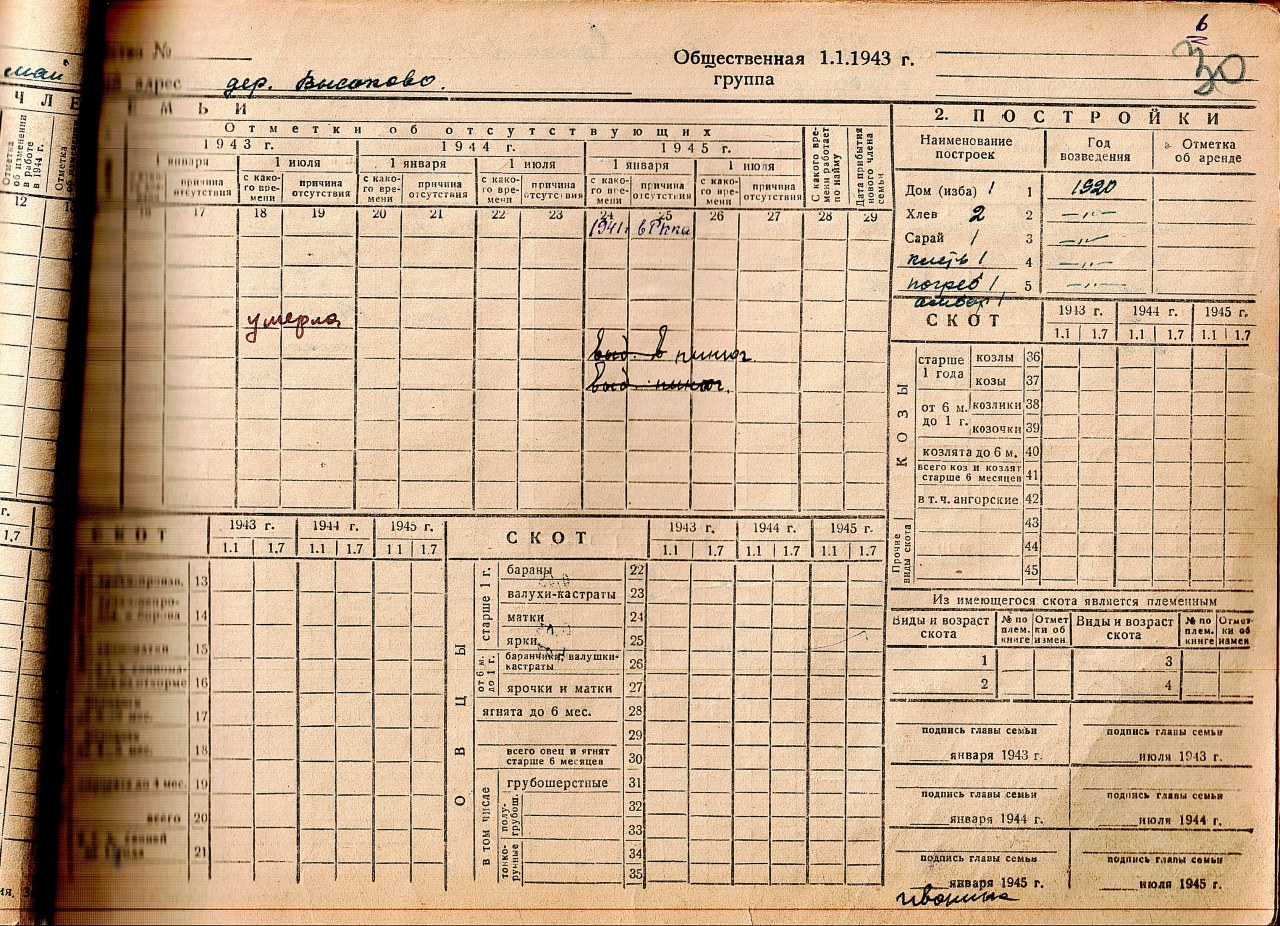 6
30
№
Общественная 1.1.1943 г.
группа
май
адрес дер. Высоково.
ЧЛЕ
МЬИ
Отметки об отсутствующих
1943 г. 1944 г. 1945 г.
1 января 1 июля 1 января 1 июля 1 января 1 июля
Отметка об изменении в работе в 1944 г.
Отметка
причина отсутствия
с како-го вре-мени причина отсутствия
с како-го вре-мени причина отсутствия
с како-го вре-мени причина отсутствия
с како-го вре-мени причина отсутствия
с како-го вре-мени причина отсутствия
С какого вре-мени работает по найму
Дата прибытия нового члена семьи
12
16 17 18 19 20 21 22 23 24 25 26 27 28 29
1941 в Ркка
умерла
выб. в пинюг.
выб. пинюг.
2. ПОСТРОЙКИ
Наименование построек Год возведения Отметка об аренде
Дом (изба) 1 1 1920
Хлев 2 2 —„—
Сарай 1 3 —„—
клеть 1 4 —„—
погреб 1 5 —„—
амбар 1
СКОТ 1943 г. 1944 г. 1945 г.
1.1 1.7 1.1 1.7 1.1 1.7
КОЗЫ
старше 1 года козлы 36
козы 37
от 6 м. до 1 г. козлики 38
козочки 39
козлята до 6 м. 40
всего коз и козлят старше 6 месяцев 41
в т.ч. ангорские 42
Прочие виды скота
43
44
45
Из имеющегося скота является племенным
Виды и возраст скота № по плем. книге Отмет-ки об измен. Виды и возраст скота № по плем. книге Отмет-ки об измен
1 3
2 4
подпись главы семьи подпись главы семьи
января 1943 г. июля 1943 г.
подпись главы семьи подпись главы семьи
января 1944 г. июля 1944 г.
подпись главы семьи подпись главы семьи
января 1945 г. июля 1945 г.
г.
1.7
СКОТ 1943 г. 1944 г. 1945 г.
1.1 1.7 1.1 1.7 1 1 1.7
13
14
15
16
17
18
19
всего 20
21
СКОТ 1943 г. 1944 г. 1945 г.
1.1 1.7 1.1 1.7 1.1 1.7
ОВЦЫ
старше 1 г.
бараны 22
валухи-кастраты 23
матки 24
ярки 25
от 6 м. до 1 г.
баранчики, валушки-кастраты 26
ярочки и матки 27
ягнята до 6 мес. 28
29
всего овец и ягнят старше 6 месяцев 30
в том числе
грубошерстные 31
полу-грубош. 32
33
тонко-рунные 34
35